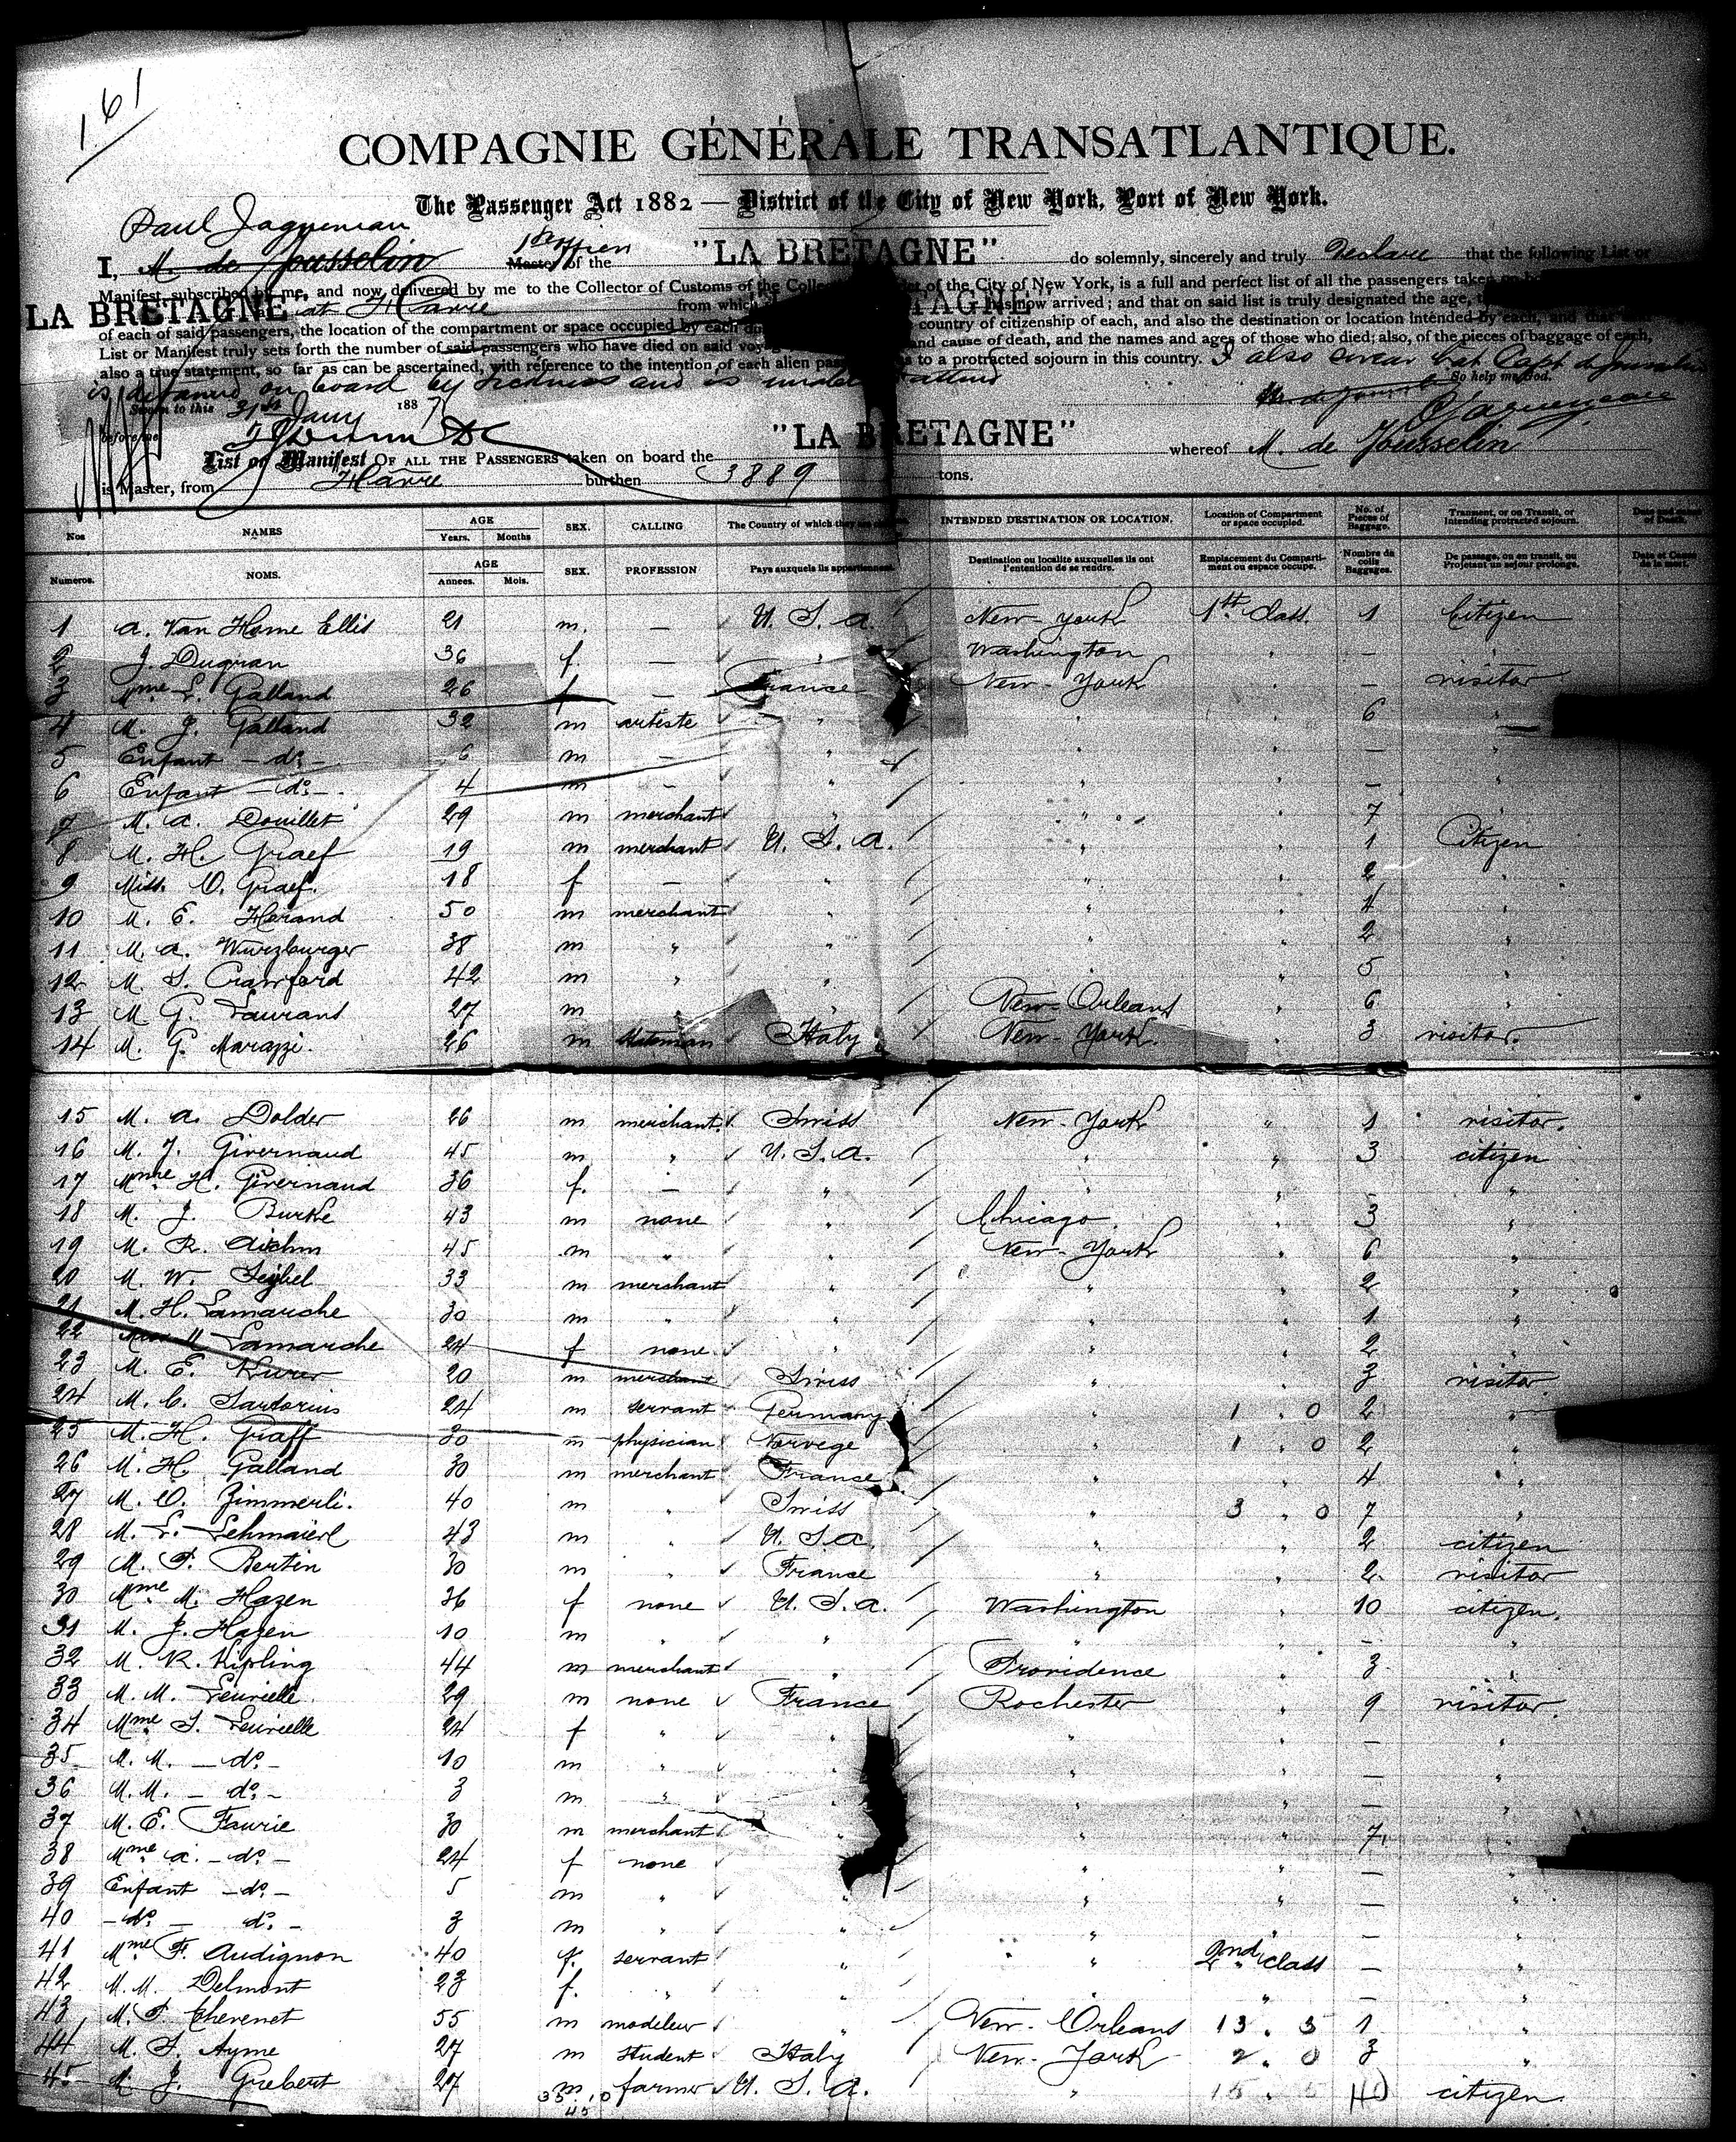 161
COMPAGNIE GÉNÉRALE TRANSATLANTIQUE.
The Passenger Act 1882 — District of the City of New York, Port of New York.
Paul Jaqueneau
I, M. de Jousselin Master of the "LA BRETAGNE" do solemnly, sincerely and truly declare that the following List or
Manifest, subscribed by me, and now delivered by me to the Collector of Customs of the Collection of the City of New York, is a full and perfect list of all the passengers taken on
LA BRETAGNE at Havre from which has now arrived; and that on said list is truly designated the age,
of each of said passengers, the location of the compartment or space occupied by each country of citizenship of each, and also the destination or location intended by each, and that
List or Manifest truly sets forth the number of said passengers who have died on said and cause of death, and the names and ages of those who died; also, of the pieces of baggage of each,
also a true statement, so far as can be ascertained, with reference to the intention of each alien to a protracted sojourn in this country. I also swear that Capt de Jousselin
is detained on board by sickness and is unable attend So help me God.
Sworn to this 31st Jany 1887
before me
"LA BRETAGNE" whereof M. de Jousselin
List or Manifest OF ALL THE PASSENGERS taken on board the
is Master, from Havre burthen 3889 tons.
Nos NAMES AGE Years. Months SEX. CALLING The Country of which they are INTENDED DESTINATION OR LOCATION. Location of Compartment or space occupied. No. of Pieces of Baggage. Transient, or on Transit, or intending protracted sojourn. Date and cause of Death.
Numeros. NOMS. AGE Annees. Mois. SEX. PROFESSION Pays auxquels ils appartiennent. Destination ou localite auxquelles ils ont l'entention de se rendre. Emplacement du Compartiment ou espace occupe. Nombre de colis Baggages. De passage, ou en transit, ou Projetant un sejour prolonge. Date et Cause de la mort.
1 A. Van Horne Ellis 21 m. — U. S. A. New-York 1st Class. 1 Citizen
2 J. Dugran 36 f. — " Washington " — "
3 Mme L. Galland 26 f — France New-York " — visitor
4 M. J. Galland 32 m arteste " " " 6 "
5 Enfant — do — 6 m — " " " — "
6 Enfant — do — 4 m — " " " — "
7 M. A. Douillet 29 m merchant " " " 7 "
8 M. H. Graef 19 m merchant U. S. A. " " 1 Citizen
9 Miss. O. Graef. 18 f — " " " 2 "
10 M. E. Herand 50 m merchant " " " 4 "
11 M. A. Wurzburger 38 m " " " " 2 "
12 M. S. Crawford 42 m " " " " 5 "
13 M G. Laurans 27 m " " New-Orleans " 6 "
14 M. G. Marazzi. 26 m Italy New-York. " 3 visitor.
15 M. A. Dolder 26 m merchant. Swiss New-York " 1 visitor.
16 M. J. Givernaud 45 m " U. S. A. " " 3 citizen
17 Mme H. Givernaud 36 f. — " " " "
18 M. J. Burke 43 m none " Chicago. " 3 "
19 M. R. 45 m " " New-York " 6 "
20 M. W. Seybel 33 m merchant " " " 2 "
21 M. H. Lamarche 30 m " " " " 1 "
22 Lamarche 24 f none " " " 2 "
23 M. E. Kurer 20 m merchant Swiss " " 3 visitor
24 M. C. Sartorius 24 m servant Germany " 1 " 0 2 "
25 M. H. Graff 30 m physician Norvege " 1 " 0 2 "
26 M. H. Galland 30 m merchant France " " 4 "
27 M. O. Zimmerli. 40 m " Swiss " 3 " 0 7 "
28 M. L. Lehmaierl 43 m " U. S. A. " " 2 citizen
29 M. F. Bertin 30 m " France " " 2 visitor
30 Mme M. Hazen 36 f none U. S. A. Washington " 10 citizen.
31 M. J. Hazen 10 m " " " " — "
32 M. R. Kipling 44 m merchant " Providence " 3 "
33 M. M. Leurielle 29 m none France Rochester " 9 visitor.
34 Mme S. Leurielle 24 f " " " — "
35 M. M. — do — 10 m " " " — "
36 M. M. — do — 3 m " " " — "
37 M. E. Faurie 30 m merchant " " " 7 "
38 Mme A. — do — 24 f none " " — "
39 Enfant — do — 5 m " " " " — "
40 — do — do — 3 m " " " " — "
41 Mme F. Audignon 40 f. servant " " 2nd class — "
42 M. M. Delmont 23 f. " " " " — "
43 M. F. Chevenet 55 m modeleur " New-Orleans 13 " 5 1 "
44 M. S. Ayme 27 m student Italy New-York 2 " 0 3 "
45 M. J. Grebert 27 m farmer U. S. A. " 15 " 5 citizen.
35 10
45